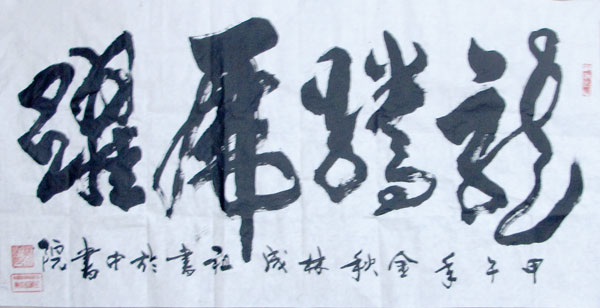 龍騰虎躍
甲午年金秋林成書於中書院